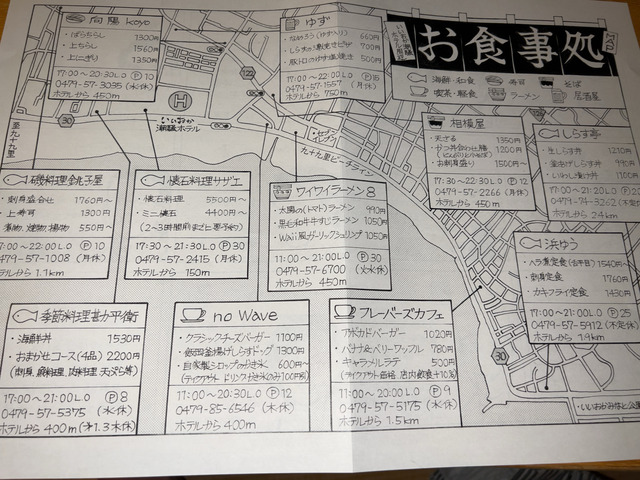 お食事処
海鮮・和食
寿司
そば
喫茶・軽食
ラーメン
居酒屋
向陽 koyo
・ばらちらし 1300円
・上ちらし 1560円
・上にぎり 1350円
17:00〜20:30L.O Ⓟ10
0479-57-3035 (水休)
ホテルから 450m
ゆず
・なめろう(ゆず入り) 660円
700円
500円
17:00〜22:00L.O Ⓟ15
0479-57-1557 (月休)
ホテルから 750m
相模屋
・天ざる 1350円
1200円
・お刺身盛り 1500円〜
17:30〜22:30L.O Ⓟ12
0479-57-2266 (月休)
ホテルから 450m
しらす亭
・生しらす丼 1210円
・釜あげしらす丼 990円
・いわし漬け丼 1100円
ホテルから 2.4km
122
30
至九十九里
いいおか潮騒ホテル
セブンイレブン
九十九里ビーチライン
磯料理 銚子屋
・刺身盛合せ 1760円〜
・上寿司 1300円
・煮物、揚物 550円〜
17:00〜22:00L.O Ⓟ10
0479-57-1008 (月休)
ホテルから 1.1km
懐石料理サザエ
・懐石料理 5500円〜
・ミニ懐石 4400円〜
(2〜3時間前までに要予約)
17:30〜21:30L.O Ⓟ30
0479-57-2415 (月休)
ホテルから 150m
ワイワイラーメン8
・太陽の(トマト)ラーメン 990円
・黒毛和牛牛すじラーメン 1050円
・Waii風ガーリックシュリンプ 1050円
11:00〜21:00L.O Ⓟ30
0479-57-6700 (火水休)
ホテルから 450m
浜ゆう
・ハラ煮定食(古平目) 1540円〜
・刺身定食 1760円
・カキフライ定食 1430円
17:00〜20:00L.O Ⓟ25
0479-57-5912 (不定休)
ホテルから 1.9km
季節料理 甚か平衛
・海鮮丼 1530円
・おまかせコース(4品) 2200円
17:00〜21:00L.O Ⓟ8
0479-57-5375 (水休)
ホテルから 400m (1.3木休)
no Wave
・クラシックチーズバーガー 1100円
・飯岡釜揚げしらすドッグ 1300円
・自家製シロップのかき氷 600円〜
(テイクアウト ドリンクかき氷のみ100円引)
11:00〜20:30L.O Ⓟ12
0479-85-6546 (木休)
ホテルから 400m
フレーバーズカフェ
・アボカドバーガー 1020円
・バナナ&ベリーワッフル 780円
・キャラメルラテ 500円
(テイクアウト価格 店内飲食+10%)
11:00〜20:00L.O Ⓟ9
0479-57-5175 (水休)
ホテルから 1.5km
30
いいおかみなと公園